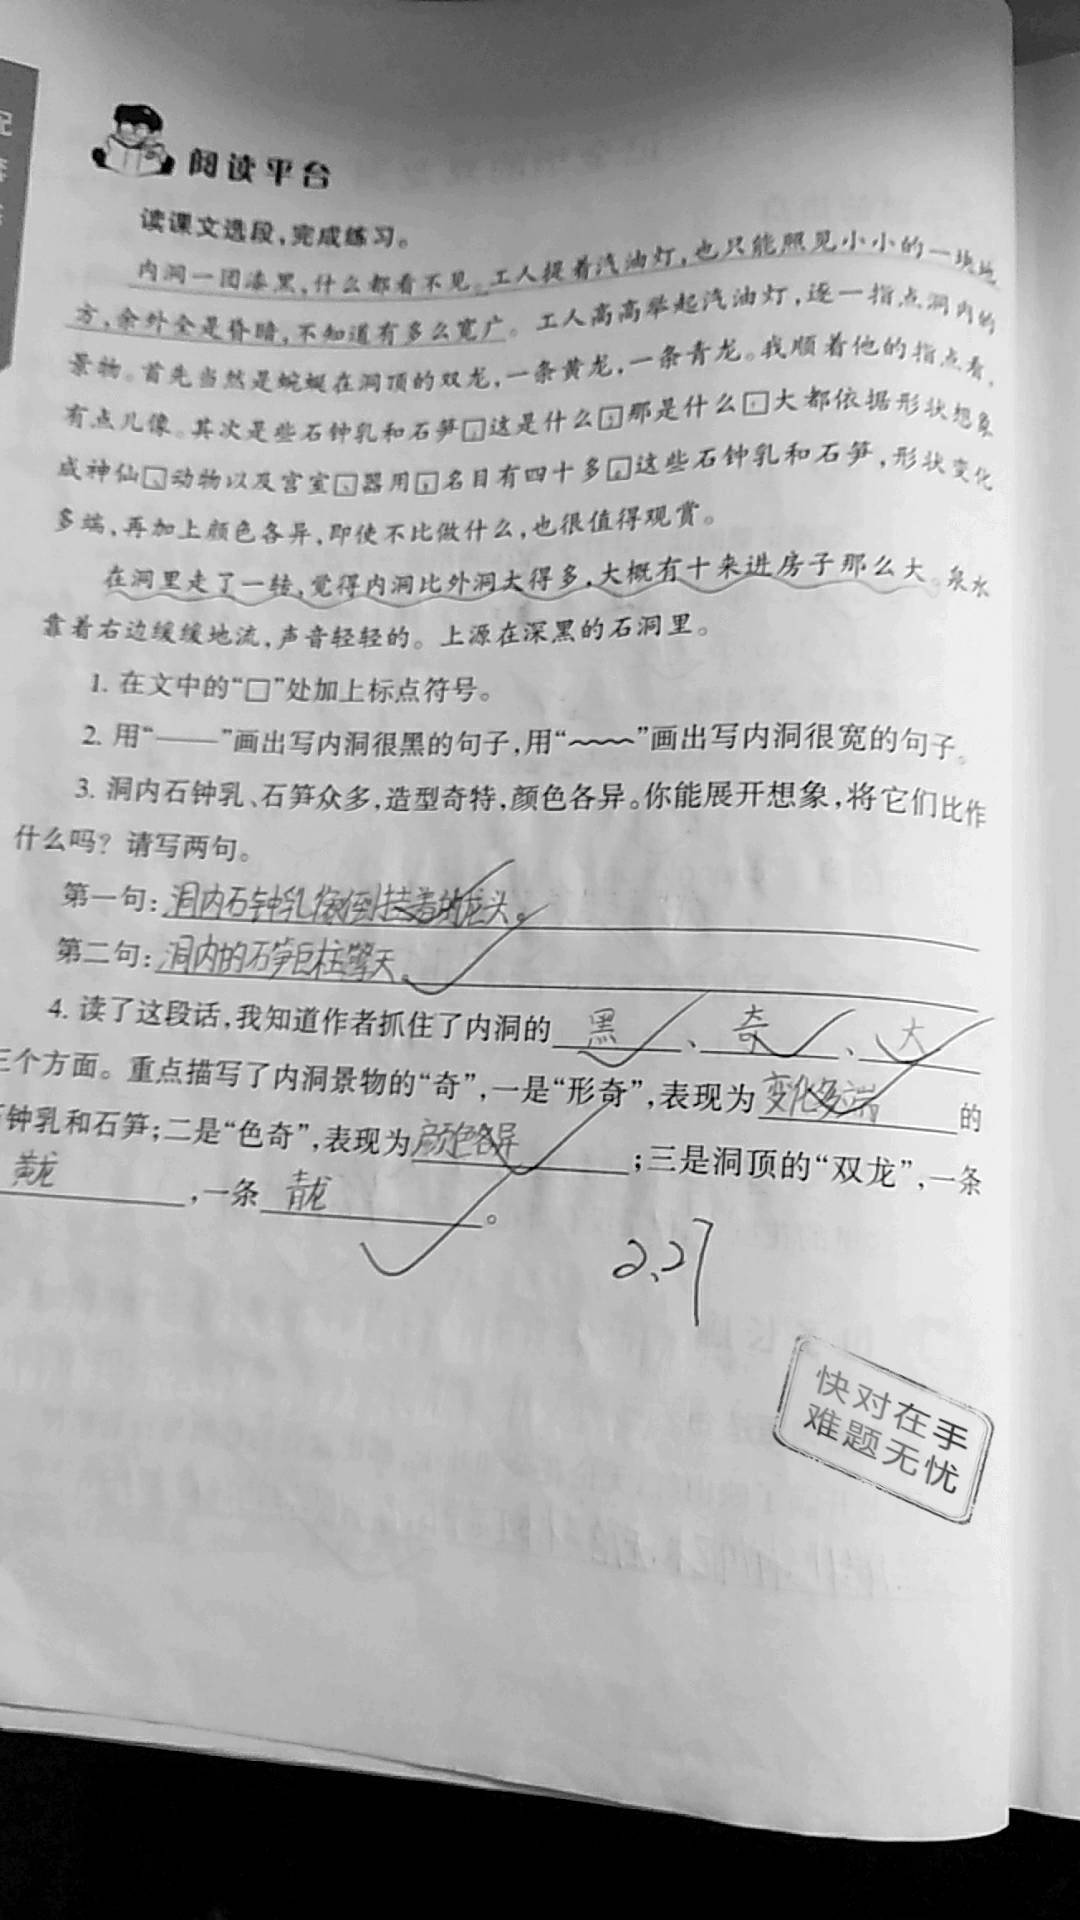 阅读平台
读课文选段,完成练习。
内洞一团漆黑,什么都看不见。工人提着汽油灯,也只能照见小小的一块地
方,余外全是昏暗,不知道有多么宽广。工人高高举起汽油灯,逐一指点洞内的
景物。首先当然是蜿蜒在洞顶的双龙,一条黄龙,一条青龙。我顺着他的指点看,
有点儿像。其次是些石钟乳和石笋□这是什么□那是什么□大都依据形状想象
成神仙□动物以及宫室□器用□名目有四十多□这些石钟乳和石笋,形状变化
多端,再加上颜色各异,即使不比做什么,也很值得观赏。
在洞里走了一转,觉得内洞比外洞大得多,大概有十来进房子那么大。泉水
靠着右边缓缓地流,声音轻轻的。上源在深黑的石洞里。
1. 在文中的“□”处加上标点符号。
2. 用“——”画出写内洞很黑的句子,用“﹏﹏”画出写内洞很宽的句子。
3. 洞内石钟乳、石笋众多,造型奇特,颜色各异。你能展开想象,将它们比作
什么吗?请写两句。
第一句:洞内石钟乳像倒挂着的龙头。
第二句:洞内的石笋巨柱擎天。
4. 读了这段话,我知道作者抓住了内洞的 黑 、 奇 、 大
三个方面。重点描写了内洞景物的“奇”,一是“形奇”,表现为 变化多端 的
钟乳和石笋;二是“色奇”,表现为 颜色各异 ;三是洞顶的“双龙”,一条
黄龙 ,一条 青龙 。
2.27
快对在手
难题无忧